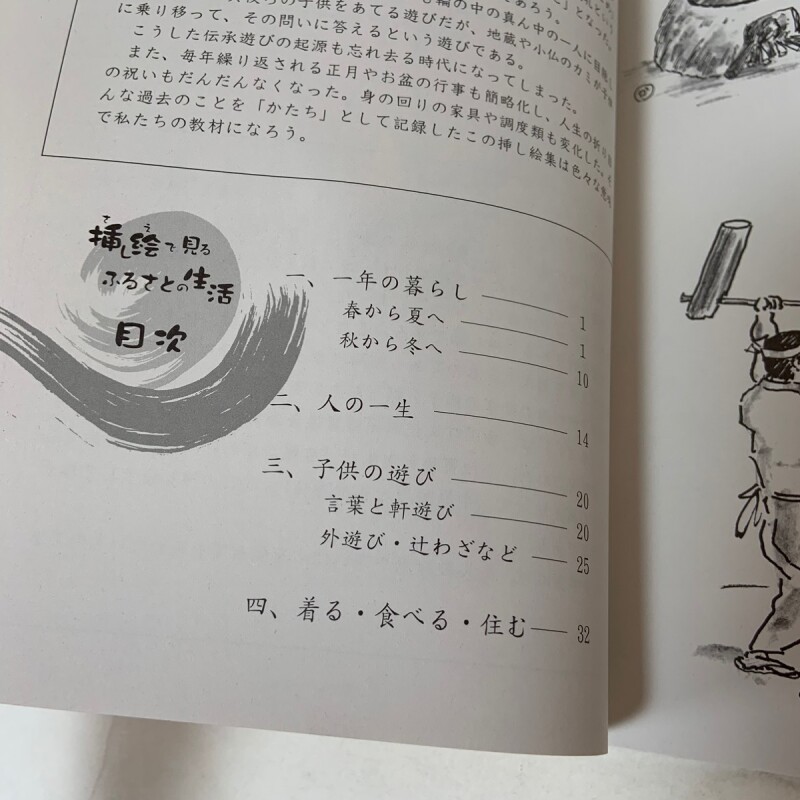 の子供をあてる遊びだが、地蔵や小仏のカミが子供
に乗り移って、その問いに答えるという遊びである。
こうした伝承遊びの起源も忘れ去る時代になってしまった。
また、毎年繰り返される正月やお盆の行事も簡略化し、人生の折
の祝いもだんだんなくなった。身の回りの家具や調度類も変化した。
んな過去のことを「かたち」として記録したこの挿し絵集は色々な
で私たちの教材になろう。
挿し絵で見る
ふるさとの生活
目次
一、一年の暮らし 1
春から夏へ 1
秋から冬へ 10
二、人の一生 14
三、子供の遊び 20
言葉と軒遊び 20
外遊び・辻わざなど 25
四、着る・食べる・住む 32